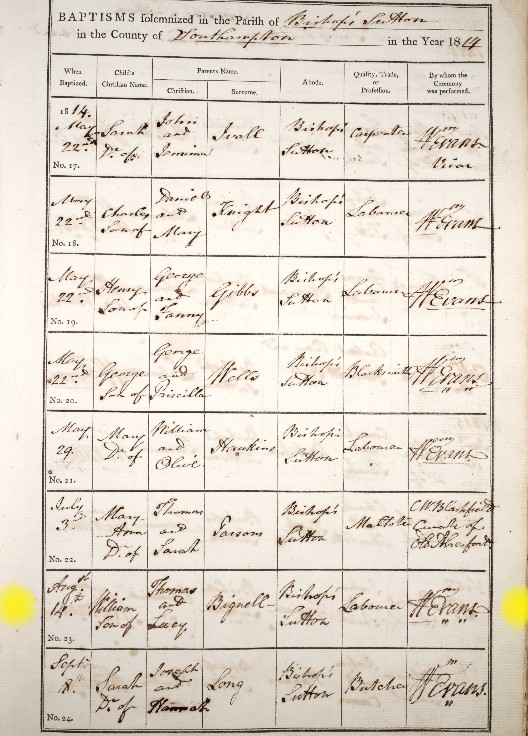 BAPTISMS solemnized in the Parish of Bishop's Sutton
in the County of Southampton in the Year 1814
When Baptized. Child's Christian Name. Parents Name. Abode. Quality, Trade, or Profession. By whom the Ceremony was performed.
Christian. Surname.
1814.
May Sarah John Ivall Bishop's Carpenter Wm
22nd Dr. of and Sutton Evans
No. 17. Jemima Vicar
May Charles Daniel Knight Bishop's Labourer Wm
22nd Son of and Sutton Evans
No. 18. Mary
May Henry George Gibbs Bishop's Labourer Wm
22d Son of and Sutton Evans
No. 19. Fanny
May George George Wells Bishop's Blacksmith Wm
22nd Son of and Sutton Evans
No. 20. Priscilla
May Mary William Hawkins Bishop's Labourer Wm
29. Dr. of and Sutton Evans
No. 21. Olive
July Mary Thomas Parsons Bishop's
3d Ann and Sutton Curate of
No. 22. Dr. of Sarah
Augst William Thomas Bignell Bishop's Labourer Wm
14th Son of and Sutton Evans
No. 23. Lucy
Sept. Sarah Joseph Long Bishop's Butcher Wm
18th Dr. of and Sutton Evans
No. 24. Hannah